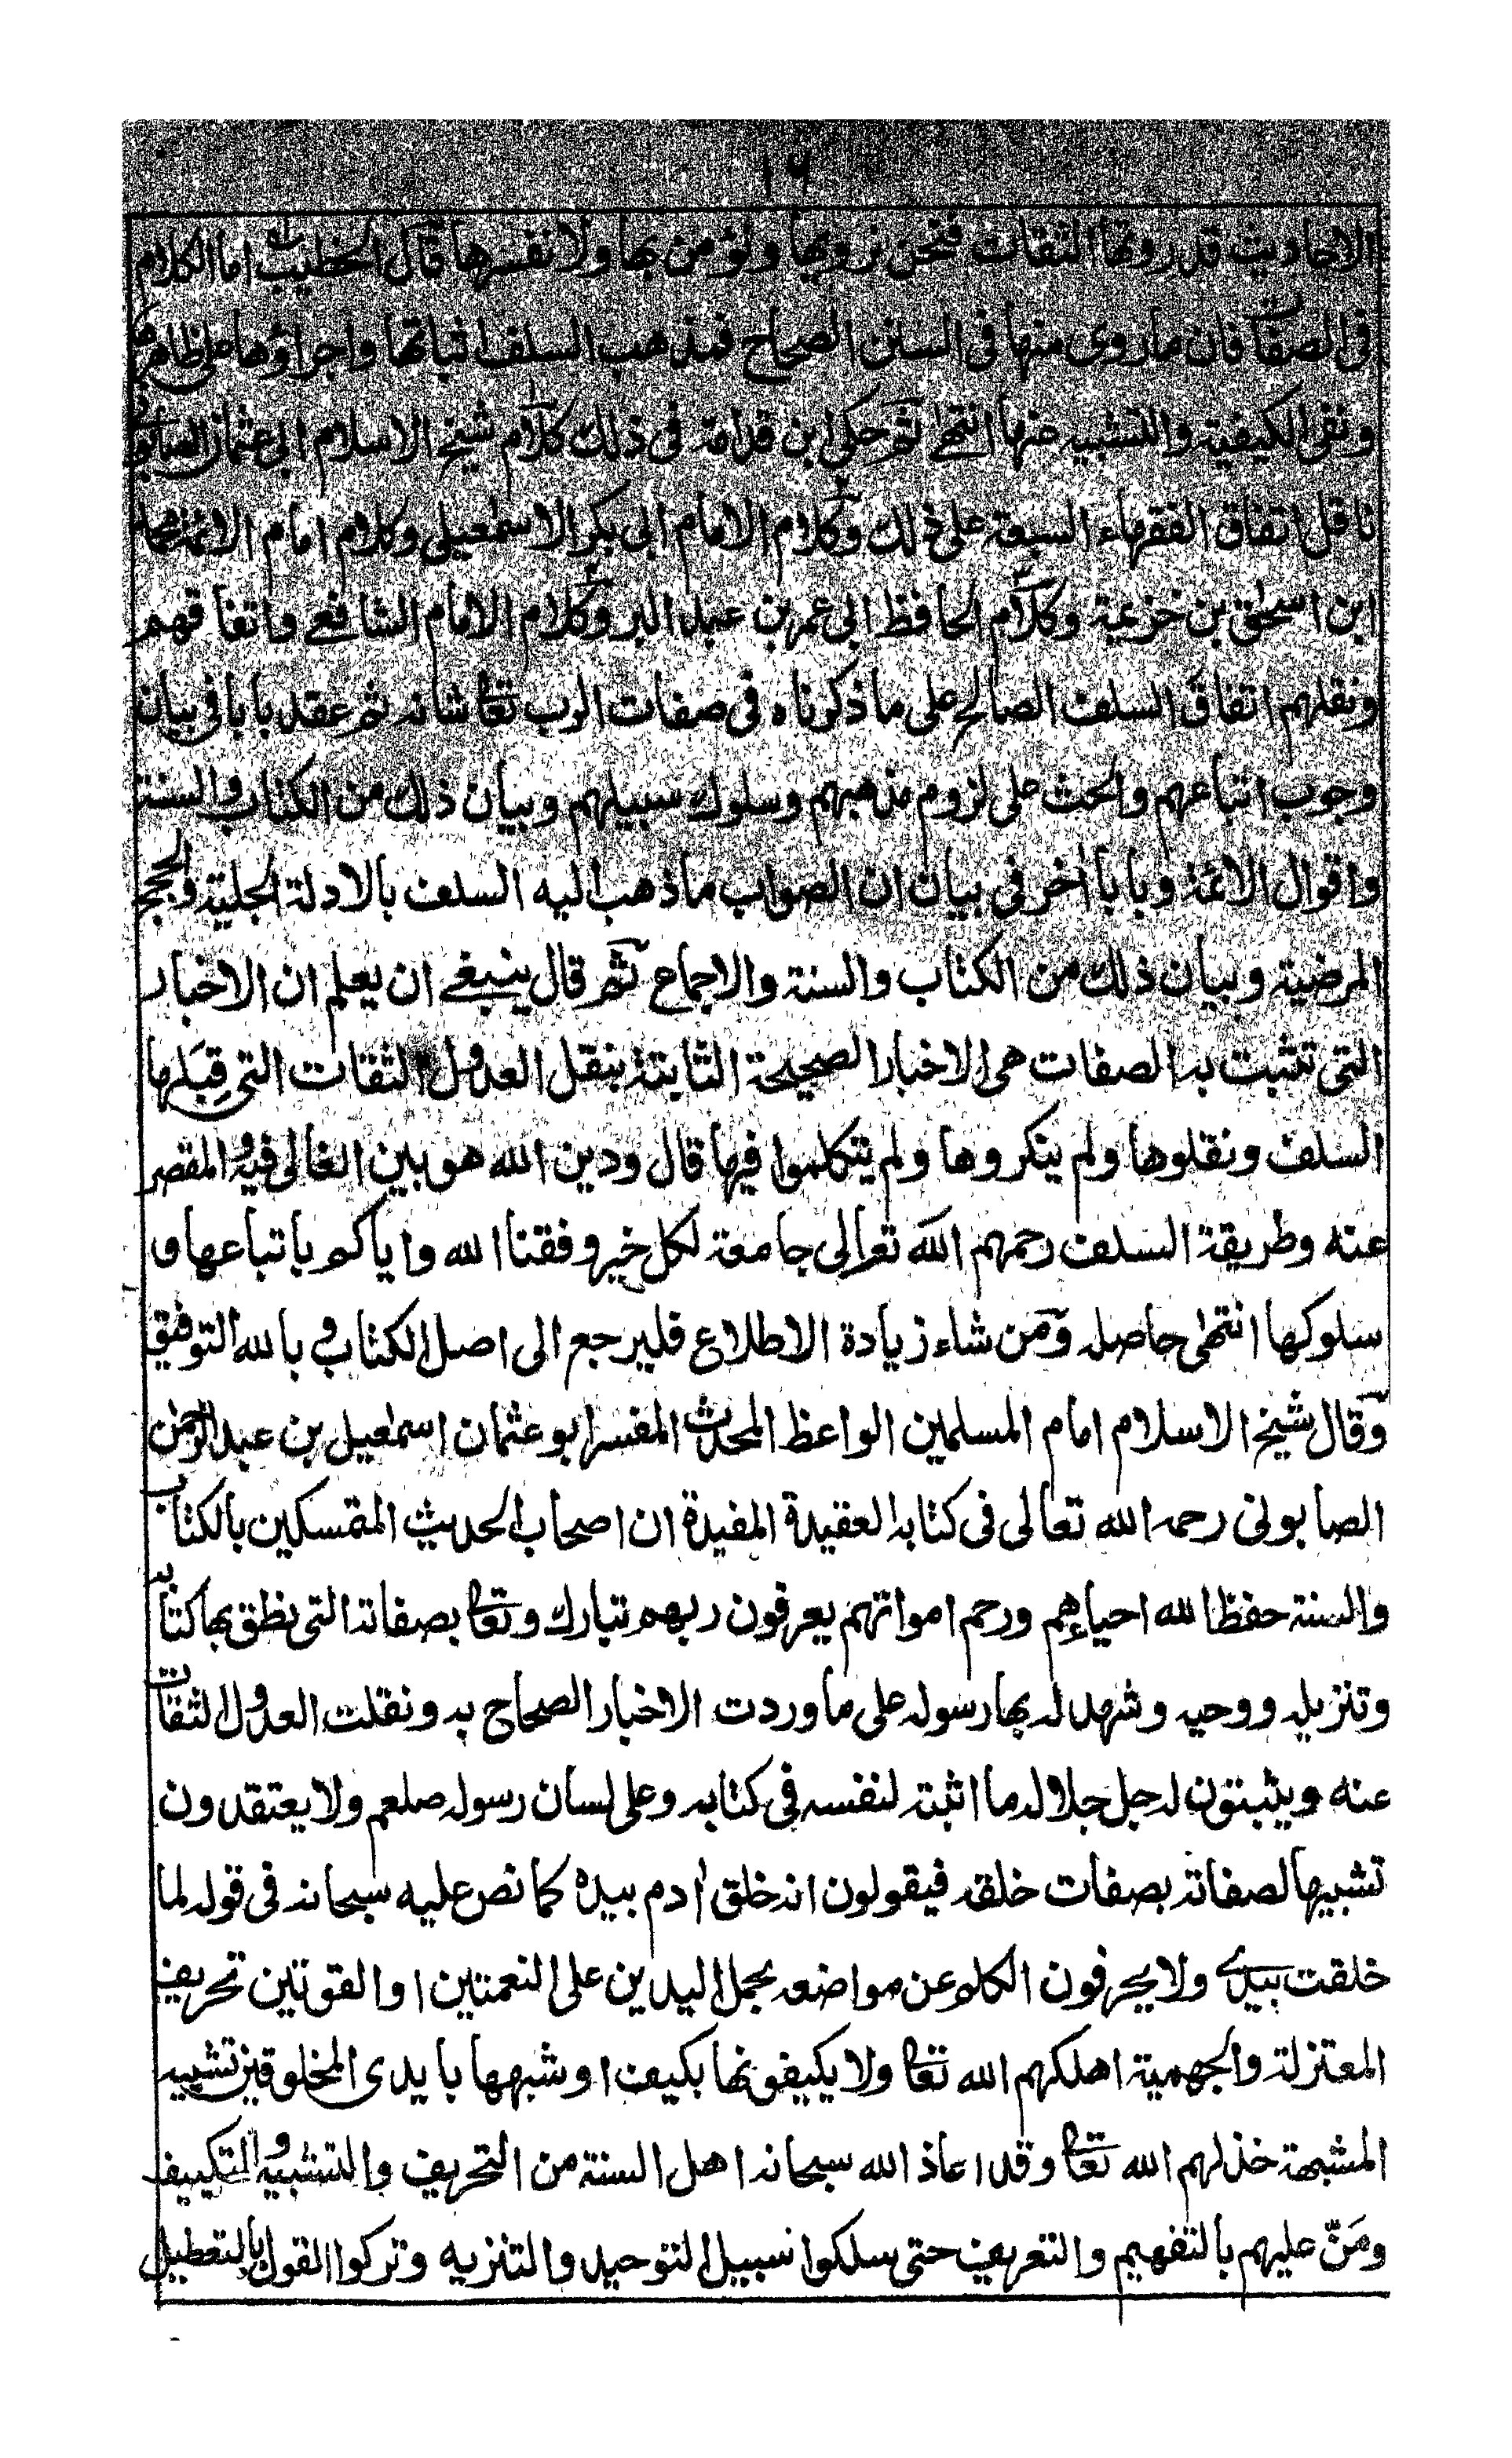 ١٦
الاحاديث قد روتها الثقات فنحن نرويها ونؤمن بها ولا نفسرها قال الخطيب اما الكلام
فى الصفات فان ما روى منها فى السنن الصحاح فمذهب السلف اثباتها واجراؤها على ظاهرها
ونفى الكيفية والتشبيه عنها انتهى ثم حكى ابن قدامة فى ذلك كلام شيخ الاسلام ابى عثمان الصابونى
ناقل اتفاق الفقهاء السبعة على ذلك وكلام الامام ابى بكر الاسمعيلى وكلام امام الائمة محمد
ابن اسحق بن خزيمة وكلام الحافظ ابى عمر بن عبد البر وكلام الامام الشافعے واتفاقهم
ونقلهم اتفاق السلف الصالح على ما ذكرناه فى صفات الرب تعا شانه ثم عقد بابا فى بيان
وجوب اتباعهم والحث على لزوم مذهبهم وسلوك سبيلهم وبيان ذلك من الكتاب والسنة
واقوال الائمة وبابا اٰخر فى بيان ان الصواب ما ذهب اليه السلف بالادلة الجلية والحجج
المرضية وبيان ذلك من الكتاب والسنة والاجماع ثم قال ينبغے ان يعلم ان الاخبار
التى تثبت به الصفات هى الاخبار الصحيحة الثابتة بنقل العدول الثقات التى قِبَلها
السلف ونقلوها ولم ينكروها ولم يتكلموا فيها قال ودين الله هو بين الغالى فيه والمقصر
عنه وطريقة السلف رحمهم الله تعالى جامعة لكل خير وفقنا الله واياكم باتباعها و
سلوكها انتهى حاصله ومن شاء زيادة الاطلاع فليرجع الى اصل الكتاب وبالله التوفيق
وقال شيخ الاسلام امام المسلمين الواعظ المحدث المفسر ابو عثمان اسمعيل بن عبد الرحمٰن
الصابونى رحمه الله تعالى فى كتابه العقيدة المفيدة ان اصحاب الحديث المتمسكين بالكتاب
والسنة حفظ الله احياءهم ورحم امواتهم يعرفون ربهم تبارك وتعا بصفاته التى نطق بها كتابه
وتنزيله ووحيه وشهد له بها رسوله على ما وردت الاخبار الصحاح به ونقلت العدول الثقات
عنه ويثبتون له جل جلاله ما اثبته لنفسه فى كتابه وعلى لسان رسوله صلعم ولا يعتقدون
تشبيها لصفاته بصفات خلقه فيقولون انه خلق اٰدم بيده كما نص عليه سبحانه فى قوله لما
خلقت بيدے ولا يحرفون الكلم عن مواضعه بحمل اليدين على النعمتين او القوتين تحريف
المعتزلة والجهمية اهلكهم الله تعا ولا يكيفونها بكيف او شبهها بايدى المخلوقين تشبيه
المشبهة خذلهم الله تعا وقد اعاذ الله سبحانه اهل السنة من التحريف والتشبيه والتكييف
ومَنّ عليهم بالتفهيم والتعريف حتى سلكوا سبيل التوحيد والتنزيه وتركوا القول بالتعطيل